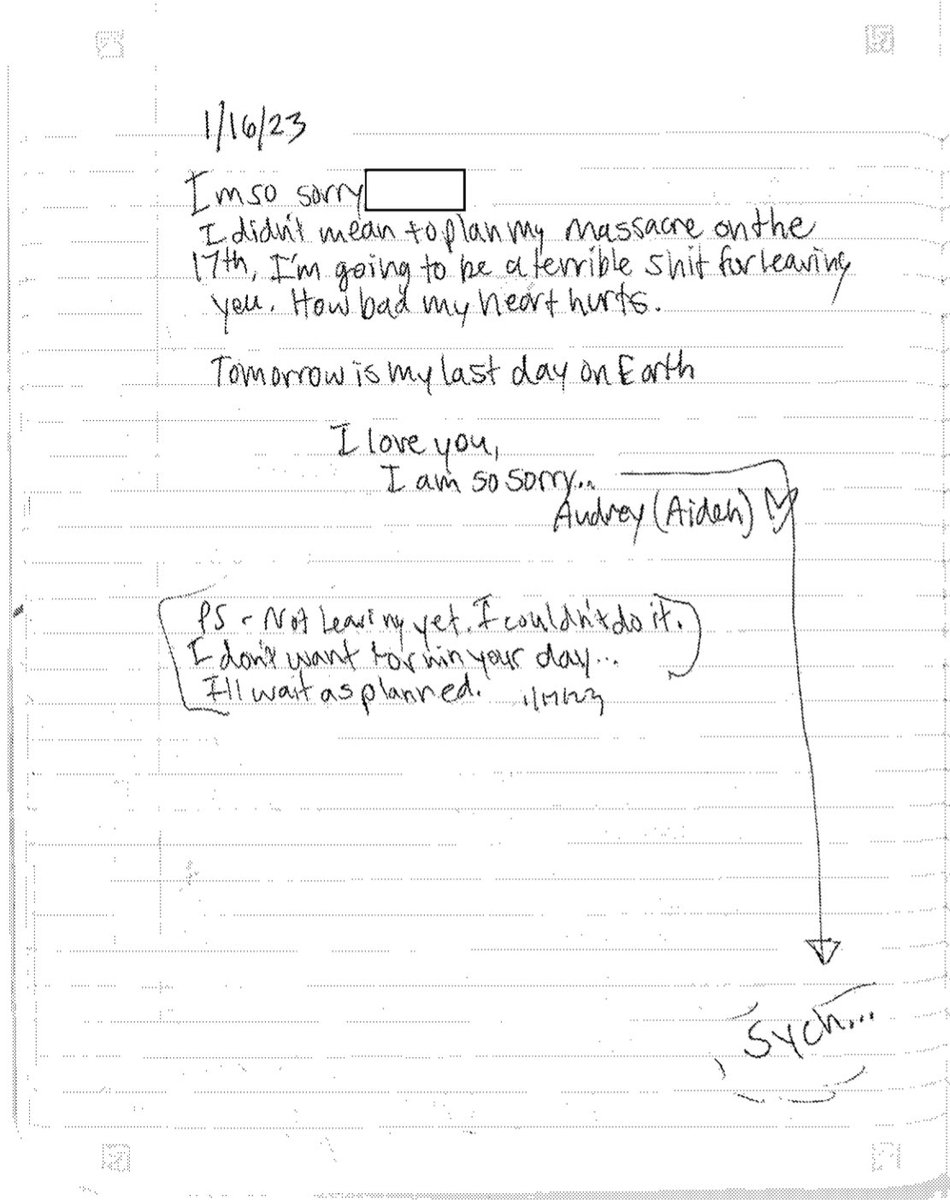 1/16/23
I'm so sorry
I didn't mean to plan my massacre on the
17th, I'm going to be a terrible shit for leaving
you. How bad my heart hurts.
Tomorrow is my last day on Earth
I love you,
I am so sorry..
Audrey (Aiden)
PS - Not Leaving yet. I couldn't do it.
I don't want to ruin your day...
I'll wait as planned. 1/17/23
Sych...